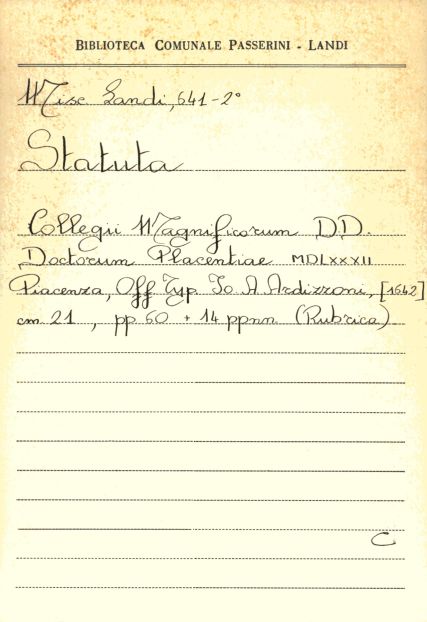 BIBLIOTECA COMUNALE PASSERINI - LANDI
Misc. Landi, 641-2°
Statuta
Collegii Magnificorum D.D.
Doctorum Placentiae MDLXXXII
Piacenza, Off. Typ. Jo. A. Ardizzoni, [1642]
cm 21, pp 60 + 14 ppnn (Rubrica)
C